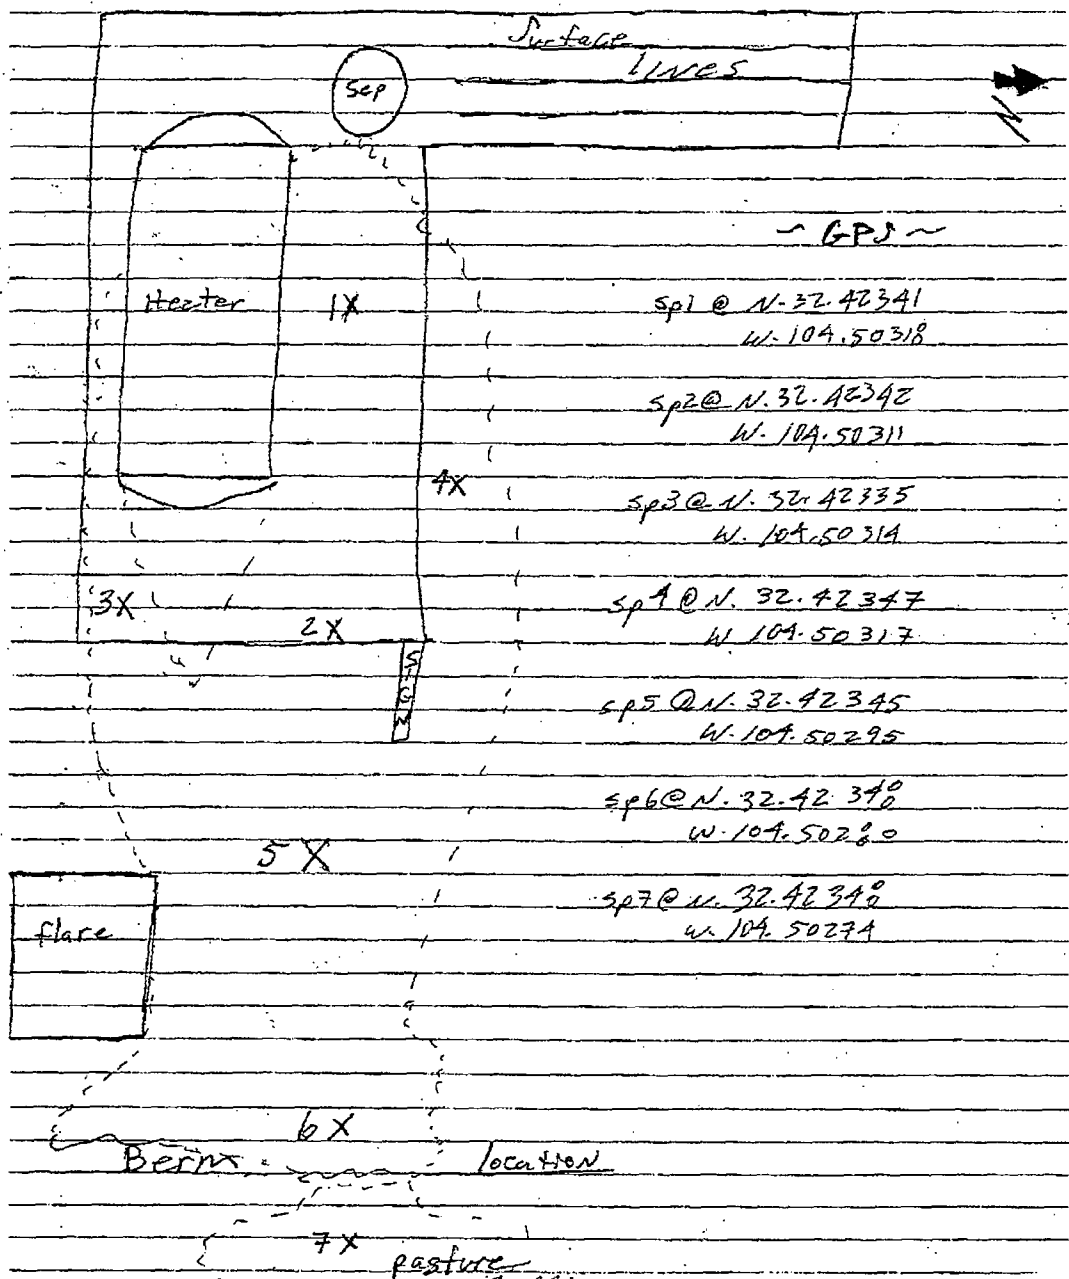 Surface
lines
Sep
N
~ GPS ~
Heater
1X
sp1 @ N. 32.42341
W. 104.50318
sp2 @ N. 32.42342
W. 104.50311
4X
sp3 @ N. 32.42335
W. 104.50314
3X
2X
sp4 @ N. 32.42347
W 104.50317
sp5 @ N. 32.42345
W. 104.50295
sp6 @ N. 32.42348
W. 104.50280
5X
flare
sp7 @ N. 32.42348
W. 104.50274
6X
Berm
location
7X
pasture